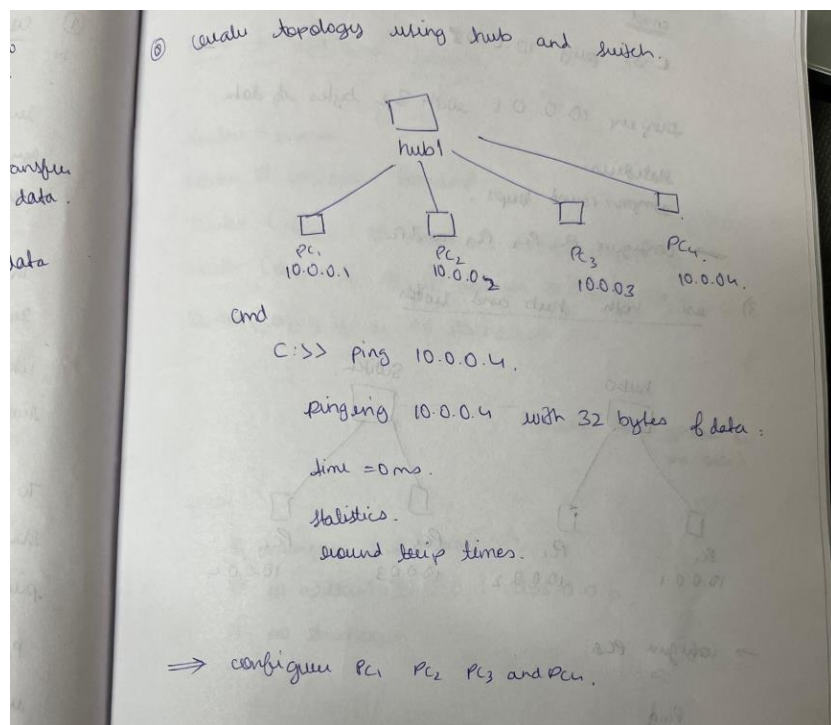 ansfer
data.
data
⓪ create topology using hub and switch.
hub1
PC1 PC2 PC3 PC4.
10.0.0.1 10.0.0.2 10.0.03 10.0.04.
cmd
C:>> ping 10.0.0.4.
pinging 10.0.0.4 with 32 bytes of data:
time = 0ms.
statistics.
round trip times.
⇒ configure PC1 PC2 PC3 and PC4.